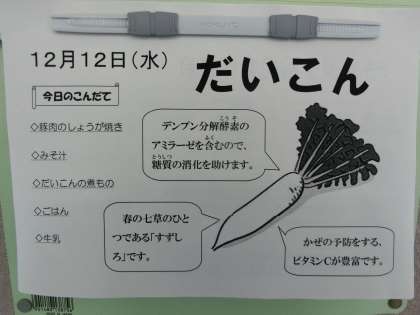 12月12日(水)
だいこん
今日のこんだて
◇豚肉のしょうが焼き
◇みそ汁
◇だいこんの煮もの
◇ごはん
◇牛乳
デンプン分解酵素の
アミラーゼを含むので、
糖質の消化を助けます。
春の七草のひと
つである「すずし
ろ」です。
かぜの予防をする、
ビタミンCが豊富です。